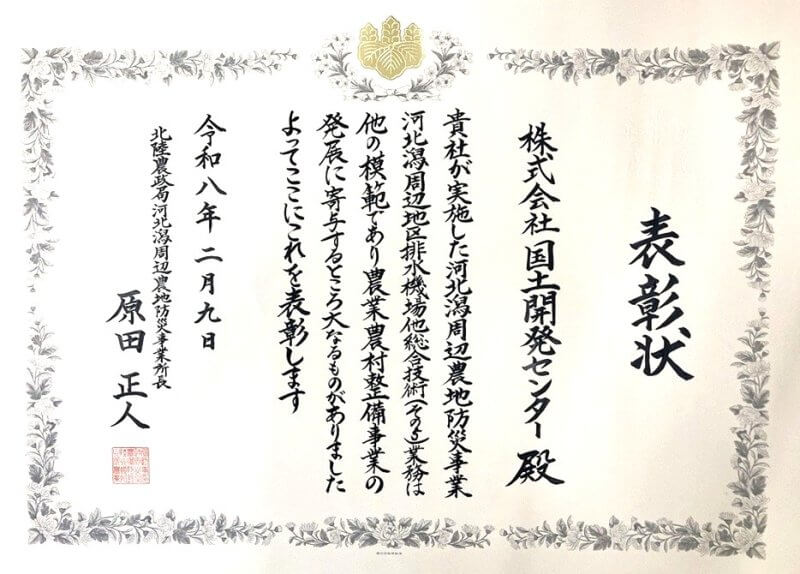 表彰状
株式会社国土開発センター 殿
貴社が実施した河北潟周辺農地防災事業
河北潟周辺地区排水機場他総合技術(その5)業務は
他の模範であり農業農村整備事業の
発展に寄与するところ大なるものがありました
よってここにこれを表彰します
令和八年二月九日
北陸農政局河北潟周辺農地防災事業所長
原田正人